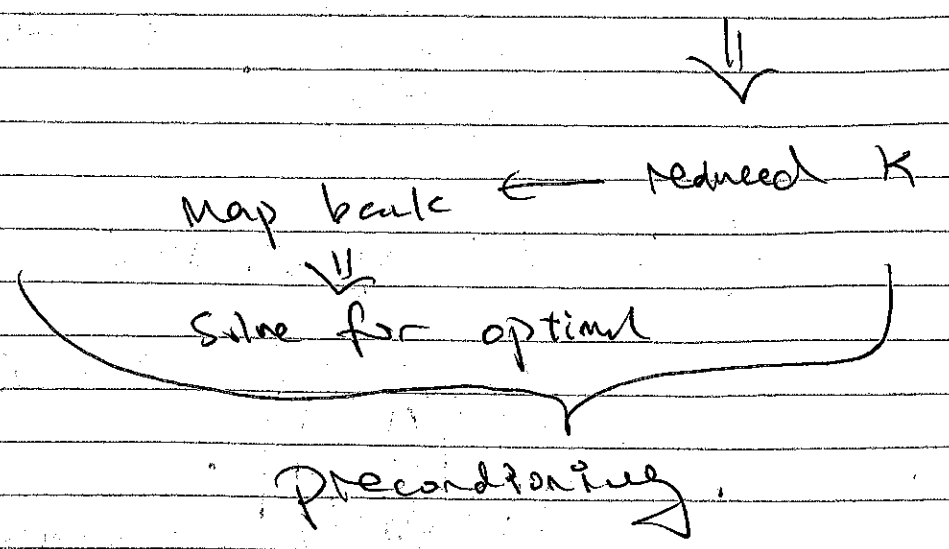 ⇓
Map back ← reduced K
⇓
Solve for optimal
preconditioning.